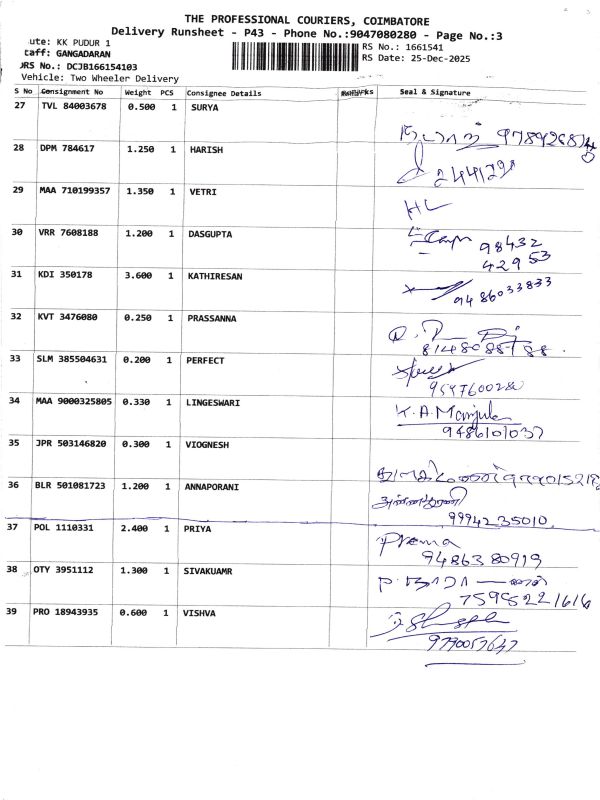 THE PROFESSIONAL COURIERS, COIMBATORE
Delivery Runsheet - P43 - Phone No.:9047080280 - Page No.:3
ute: KK PUDUR 1
RS No.: 1661541
taff: GANGADARAN
RS Date: 25-Dec-2025
DRS No.: DCJB166154103
Vehicle: Two Wheeler Delivery
S No Consignment No Weight PCS Consignee Details Remarks Seal & Signature
27 TVL 84003678 0.500 1 SURYA
28 DPM 784617 1.250 1 HARISH
2441291
29 MAA 710199357 1.350 1 VETRI
30 VRR 7608188 1.200 1 DASGUPTA
98432
42953
31 KDI 350178 3.600 1 KATHIRESAN
9486033833
32 KVT 3476080 0.250 1 PRASSANNA
8148085788
33 SLM 385504631 0.200 1 PERFECT
34 MAA 9000325805 0.330 1 LINGESWARI
K.A.Manjula
9486101037
35 JPR 503146820 0.300 1 VIOGNESH
36 BLR 501081723 1.200 1 ANNAPORANI
அன்னபூரணி
9994235010
37 POL 1110331 2.400 1 PRIYA
Prema
9486380919
38 OTY 3951112 1.300 1 SIVAKUAMR
39 PRO 18943935 0.600 1 VISHVA